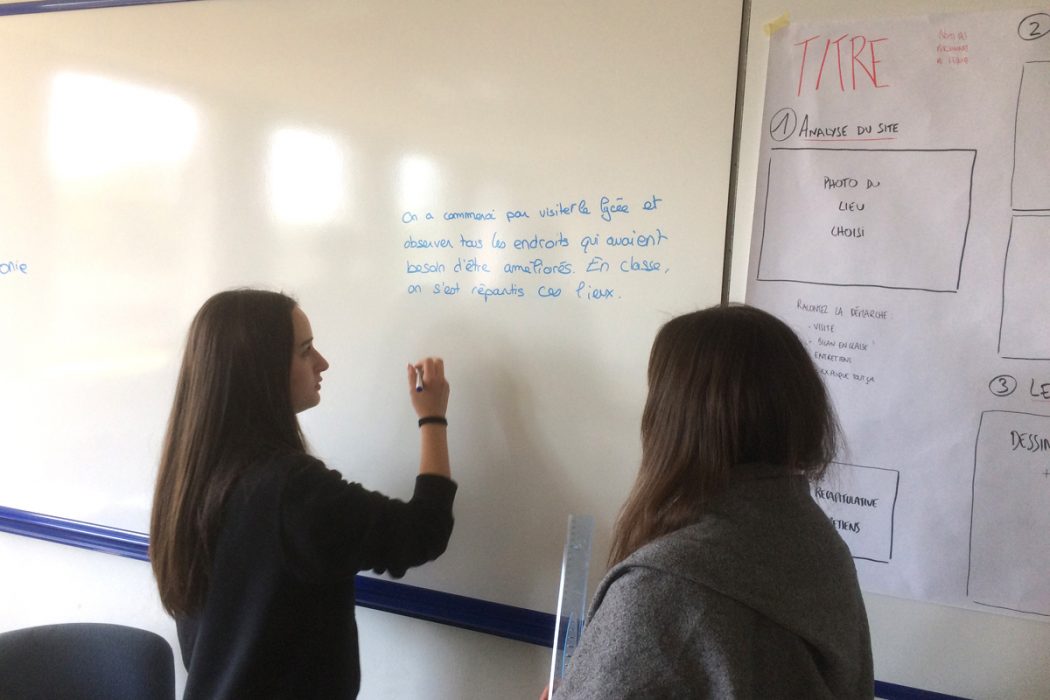 onie
On a commencé par visiter le lycée et
observer tous les endroits qui avaient
besoin d'être améliorés. En classe,
on s'est répartis ces lieux.
TITRE
NOMS DES
PERSONNES
1 ANALYSE DU SITE
PHOTO DU
LIEU
CHOISI
RACONTEZ LA DÉMARCHE :
- VISITE
- BILAN EN CLASSE
ENTRETIENS
RÉCAPITULATIVE
ETIENS
2
3 LE
DESSIN
+